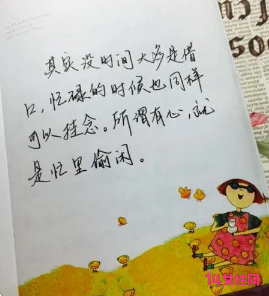 其实没时间大多是借
口，忙碌的时候也同样
可以挂念。所谓有心，就
是忙里偷闲。